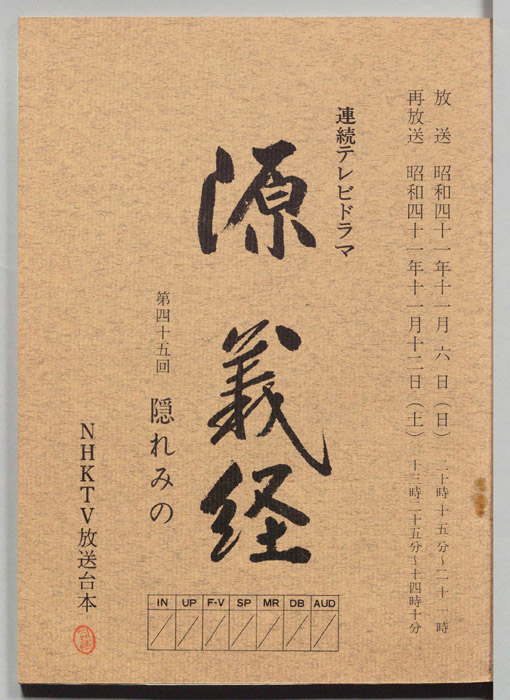 放送　昭和四十一年十一月六日（日）　二十時十五分～二十一時
再放送　昭和四十一年十一月十二日（土）　十三時二十五分～十四時十分
連続テレビドラマ
源義経
第四十五回　隠れみの
NHKTV放送台本
IN UP F-V SP MR DB AUD